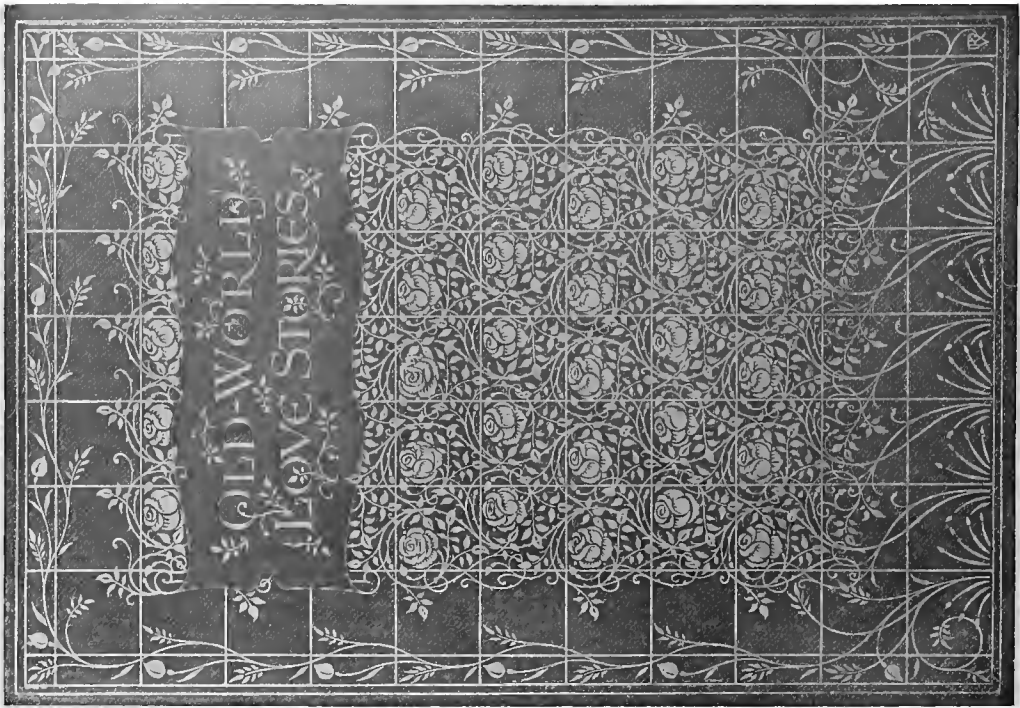 OLD-WORLD
LOVE STORIES